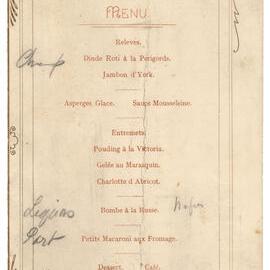 MENU
Releves.
Dinde Roti à la Perigords.
Jambon d'York.
Asperges Glace. Sauce Mousseleine.
Entremets.
Pouding à la Victoria.
Gelée au Marasquin.
Charlotte d'Abricot.
Bombe à la Russe.
Port
Petits Macaroni aux Fromage.
Dessert. Café.